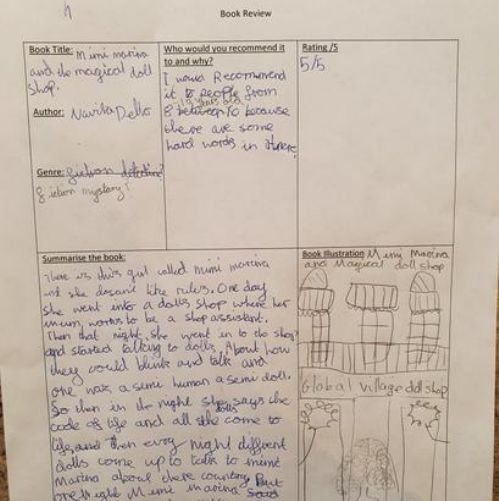 Book Review
Book Title: Mimi marina
and the magical doll
shop.
Author: Navita Dello
Genre: fiction detective?
fiction mystery!
Who would you recommend it
to and why?
I would Recommend
it to people from
8 between 10 because
there are some
hard words in there
Rating /5
5/5
Summarise the book:
There is this girl called mimi marina
and she desant like rules. One day
she went into a dolls shop where her
mum works to be a shop assistent.
Then that night she went in to the shop
and started talking to dolls. About how
they could blink and talk and
one was a semi human a semi doll.
So then in the night she says the
code of life and all the dolls come to
life, and then evry night different
dolls come up to talk to mimi
Marina about there country. But
one night Mimi marina said
Book Illustration Mimi Marina
and Magical doll shop
Global village doll shop